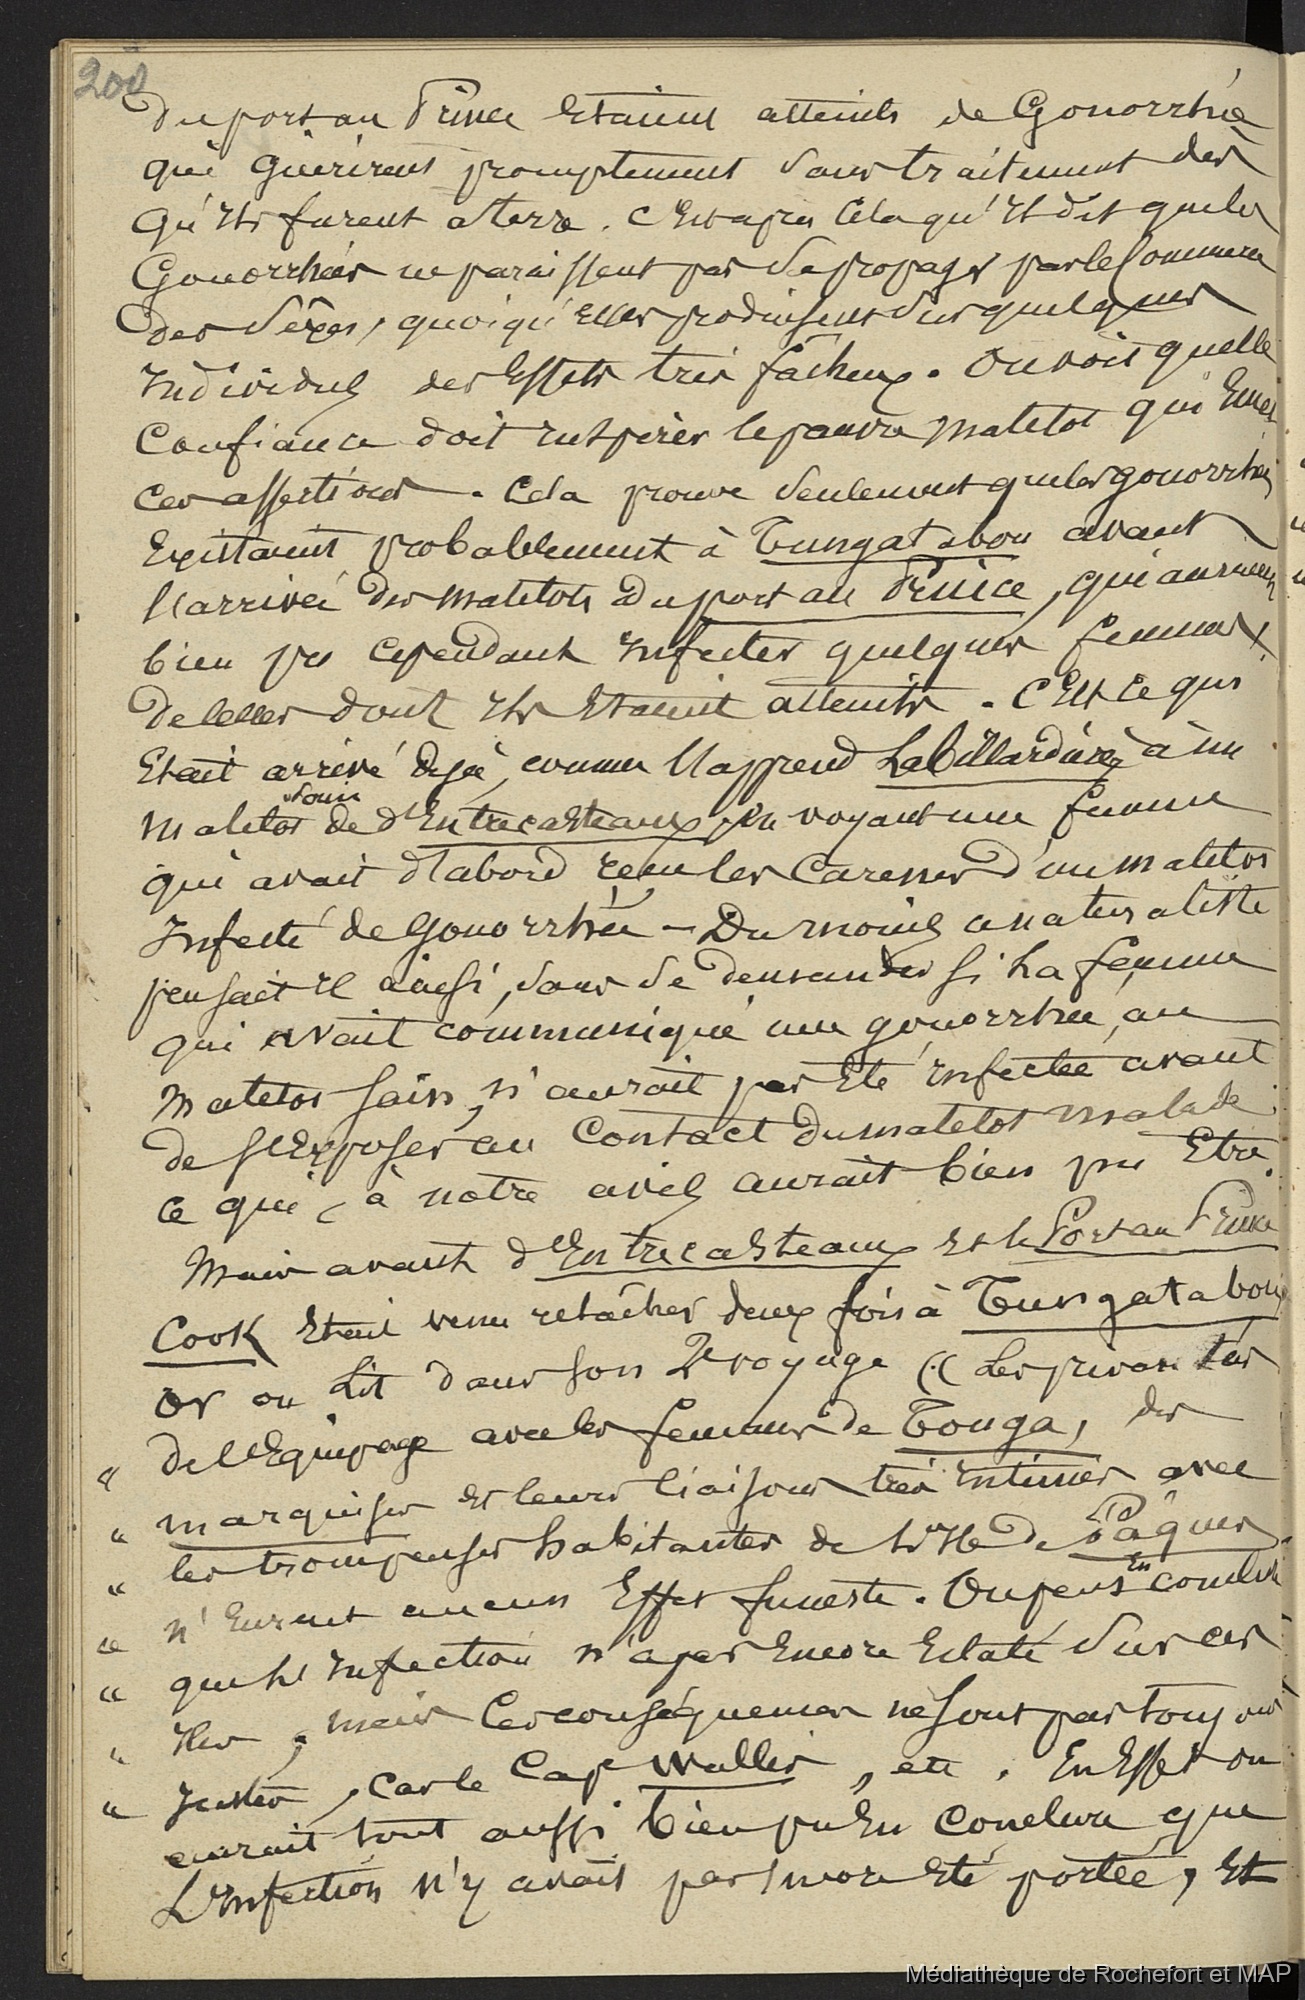 200
Du port au Prince Etaient atteints de Gonorrhée
qui Guérirent promptement sans traitement dès
qu'ils furent à terre. C'Est après cela qu'Il dit que les
Gonorrhées ne paraissent pas se propager par le Commerce
des Sexes, quoiqu'Elles produisent sur quelques
Individus des Effets très fâcheux. On voit quelle
Confiance doit Inspirer le pauvre Matelot qui Emet
ces assertions. Cela prouve seulement que les gonorrhées
Existaient probablement à Tungatabou avant
l'arrivée des Matelots du port au Prince, qui auraient
bien pu cependant Infecter quelques femmes
de celles dont Ils Etaient atteints. C'Est ce qui
Etait arrivé déjà, comme l'apprend Labillardière, à un
Matelot sain de d'Entrecasteaux, En voyant une femme
qui avait d'abord reçu les Caresses d'un Matelot
Infecté de Gonorrhée - Du moins ce naturaliste
pensait Il ainsi, sans se demander si la femme
qui avait communiqué une gonorrhée, au
Matelot sain, n'aurait pas Eté Infectée avant
de s'Exposer au Contact du matelot malade
ce qui, à notre avis aurait bien pu Etre.
Mais avant d'Entrecasteaux Et le Port au Prince
Cook Etait venu relâcher deux fois à Tungatabou
or on lit dans son 2e voyage (« Les privautés
« de l'Equipage avec les femmes de Tonga, des
« Marquises et leurs liaisons très Intimes avec
« les trompeuses habitantes de l'Ile de Pâques
« n'Eurent aucun Effet funeste. On peut En conclure
« que l'Infection n'a pas Encore Eclaté sur ces
« Iles, mais les conséquences ne sont pas toujours
« Justes, car le Cap Wallis, etc. En Effet on
aurait tout aussi bien pu En conclure que
L'Infection n'y avait pas Encore Eté portée, Et
Médiathèque de Rochefort et MAP